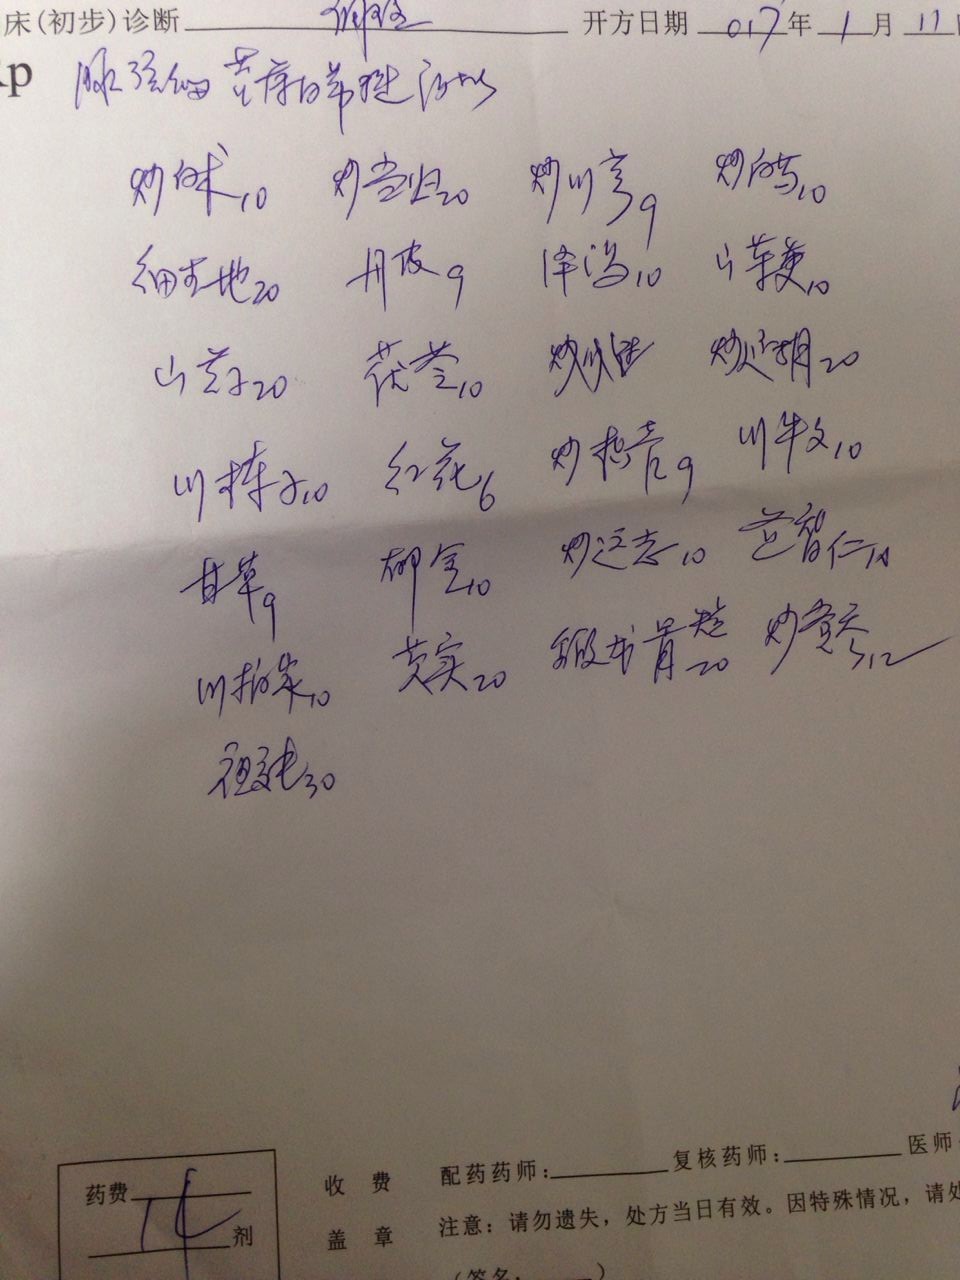 床(初步)诊断 开方日期 017年1月11日
Rp 脉弦细 苔薄白
炒白术10 炒当归20 炒川芎9 炒白芍10
细生地20 丹皮9 泽泻10 山茱萸10
山药20 茯苓10 炒延胡20
川楝子10 红花6 炒枳壳9 川牛夕10
甘草9 郁金10 炒远志10 益智仁10
芡实20 煅龙骨20 12
30
药费
14剂
收费 配药药师: 复核药师: 医师
盖章 注意:请勿遗失,处方当日有效。因特殊情况,请处
(签名: )